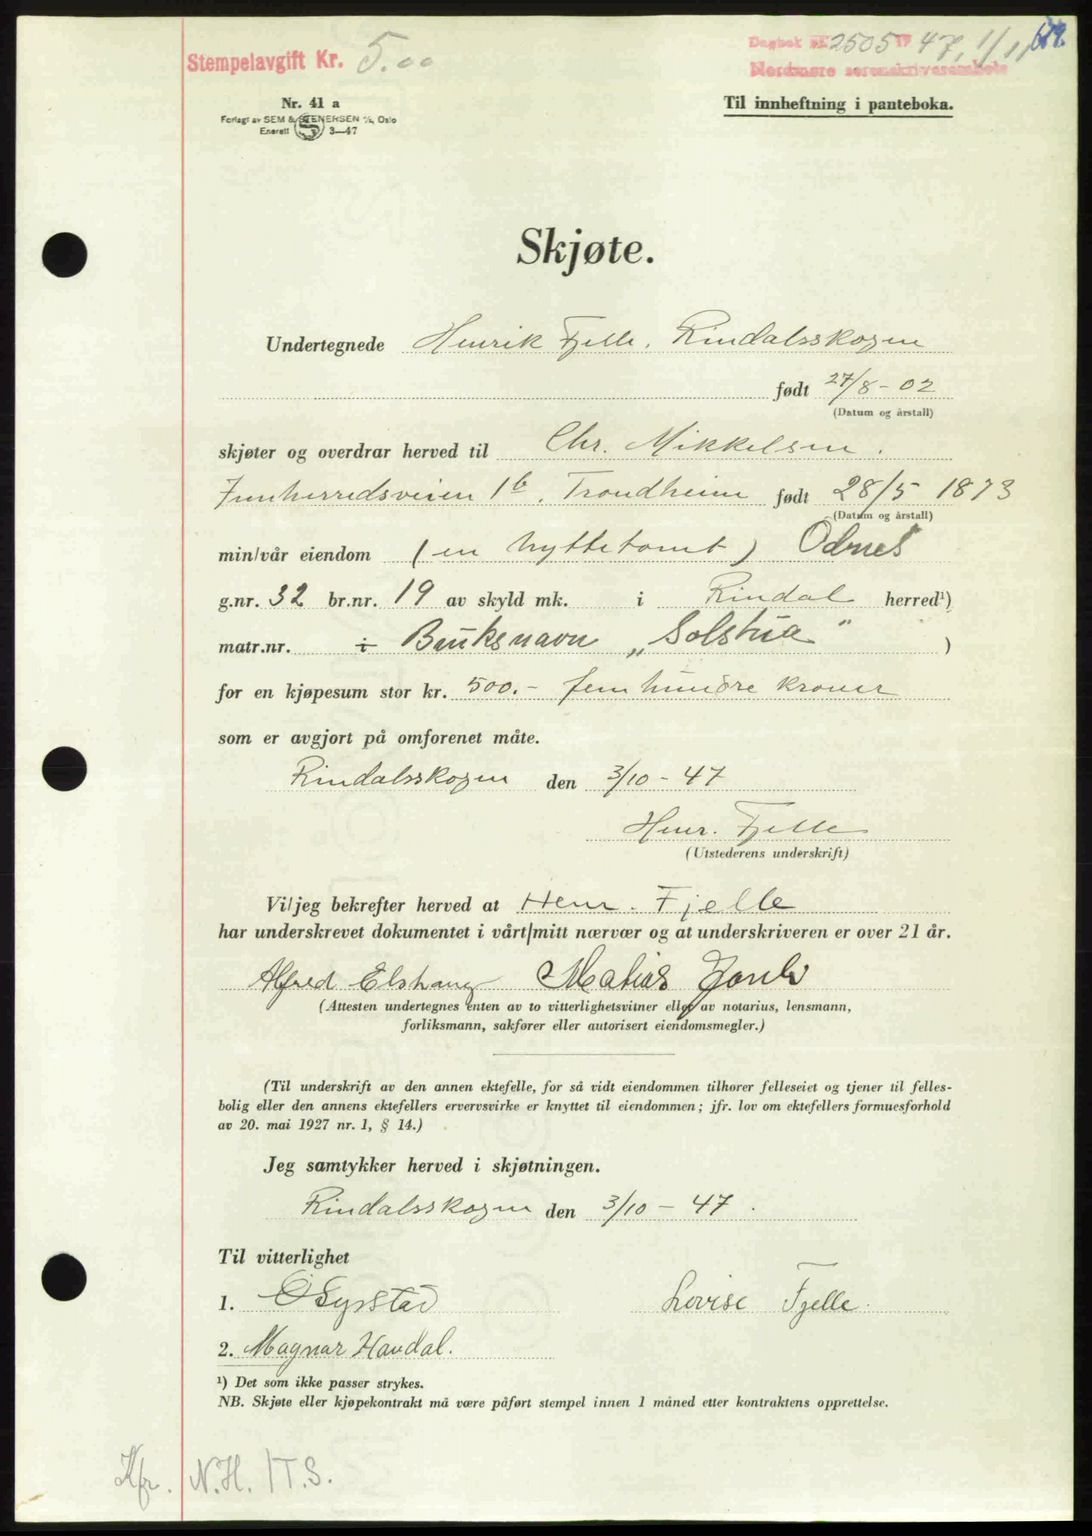 Stempelavgift Kr. 5.00
Dagbok nr. 2505 19 47, 1/11
Nordmøre sorenskriverembete
Nr. 41 a
Forlagt av SEM & STENERSEN A/S, Oslo
Enerett S 3—47
Til innheftning i panteboka.
Skjøte.
Undertegnede Henrik Fjelle, Rindalsskogen
født 27/8 - 02
(Datum og årstall)
skjøter og overdrar herved til Chr. Mikkelsen.
Innherredsveien 1b. Trondheim født 28/5 1873
(Datum og årstall)
min/vår eiendom (en hyttetomt) Ødnes
g.nr. 32 br.nr. 19 av skyld mk. i Rindal herred¹)
matr.nr. i Bruksnavn „Solstua" )
for en kjøpesum stor kr. 500.- fem hundre kroner
som er avgjort på omforenet måte.
Rindalsskogen den 3/10 - 47
Henr. Fjelle
(Utstederens underskrift)
Vi/jeg bekrefter herved at Henr. Fjelle
har underskrevet dokumentet i vårt/mitt nærvær og at underskriveren er over 21 år.
Alfred Elshaug Matias
(Attesten undertegnes enten av to vitterlighetsvitner eller av notarius, lensmann,
forliksmann, sakfører eller autorisert eiendomsmegler.)
(Til underskrift av den annen ektefelle, for så vidt eiendommen tilhører felleseiet og tjener til felles-
bolig eller den annens ektefellers ervervsvirke er knyttet til eiendommen; jfr. lov om ektefellers formuesforhold
av 20. mai 1927 nr. 1, § 14.)
Jeg samtykker herved i skjøtningen.
Rindalsskogen den 3/10 - 47.
Til vitterlighet
1. O Syrstad Lovise Fjelle.
2. Magnar Haudal.
¹) Det som ikke passer strykes.
NB. Skjøte eller kjøpekontrakt må være påført stempel innen 1 måned etter kontraktens opprettelse.
Kfr. N.H. / T.S.